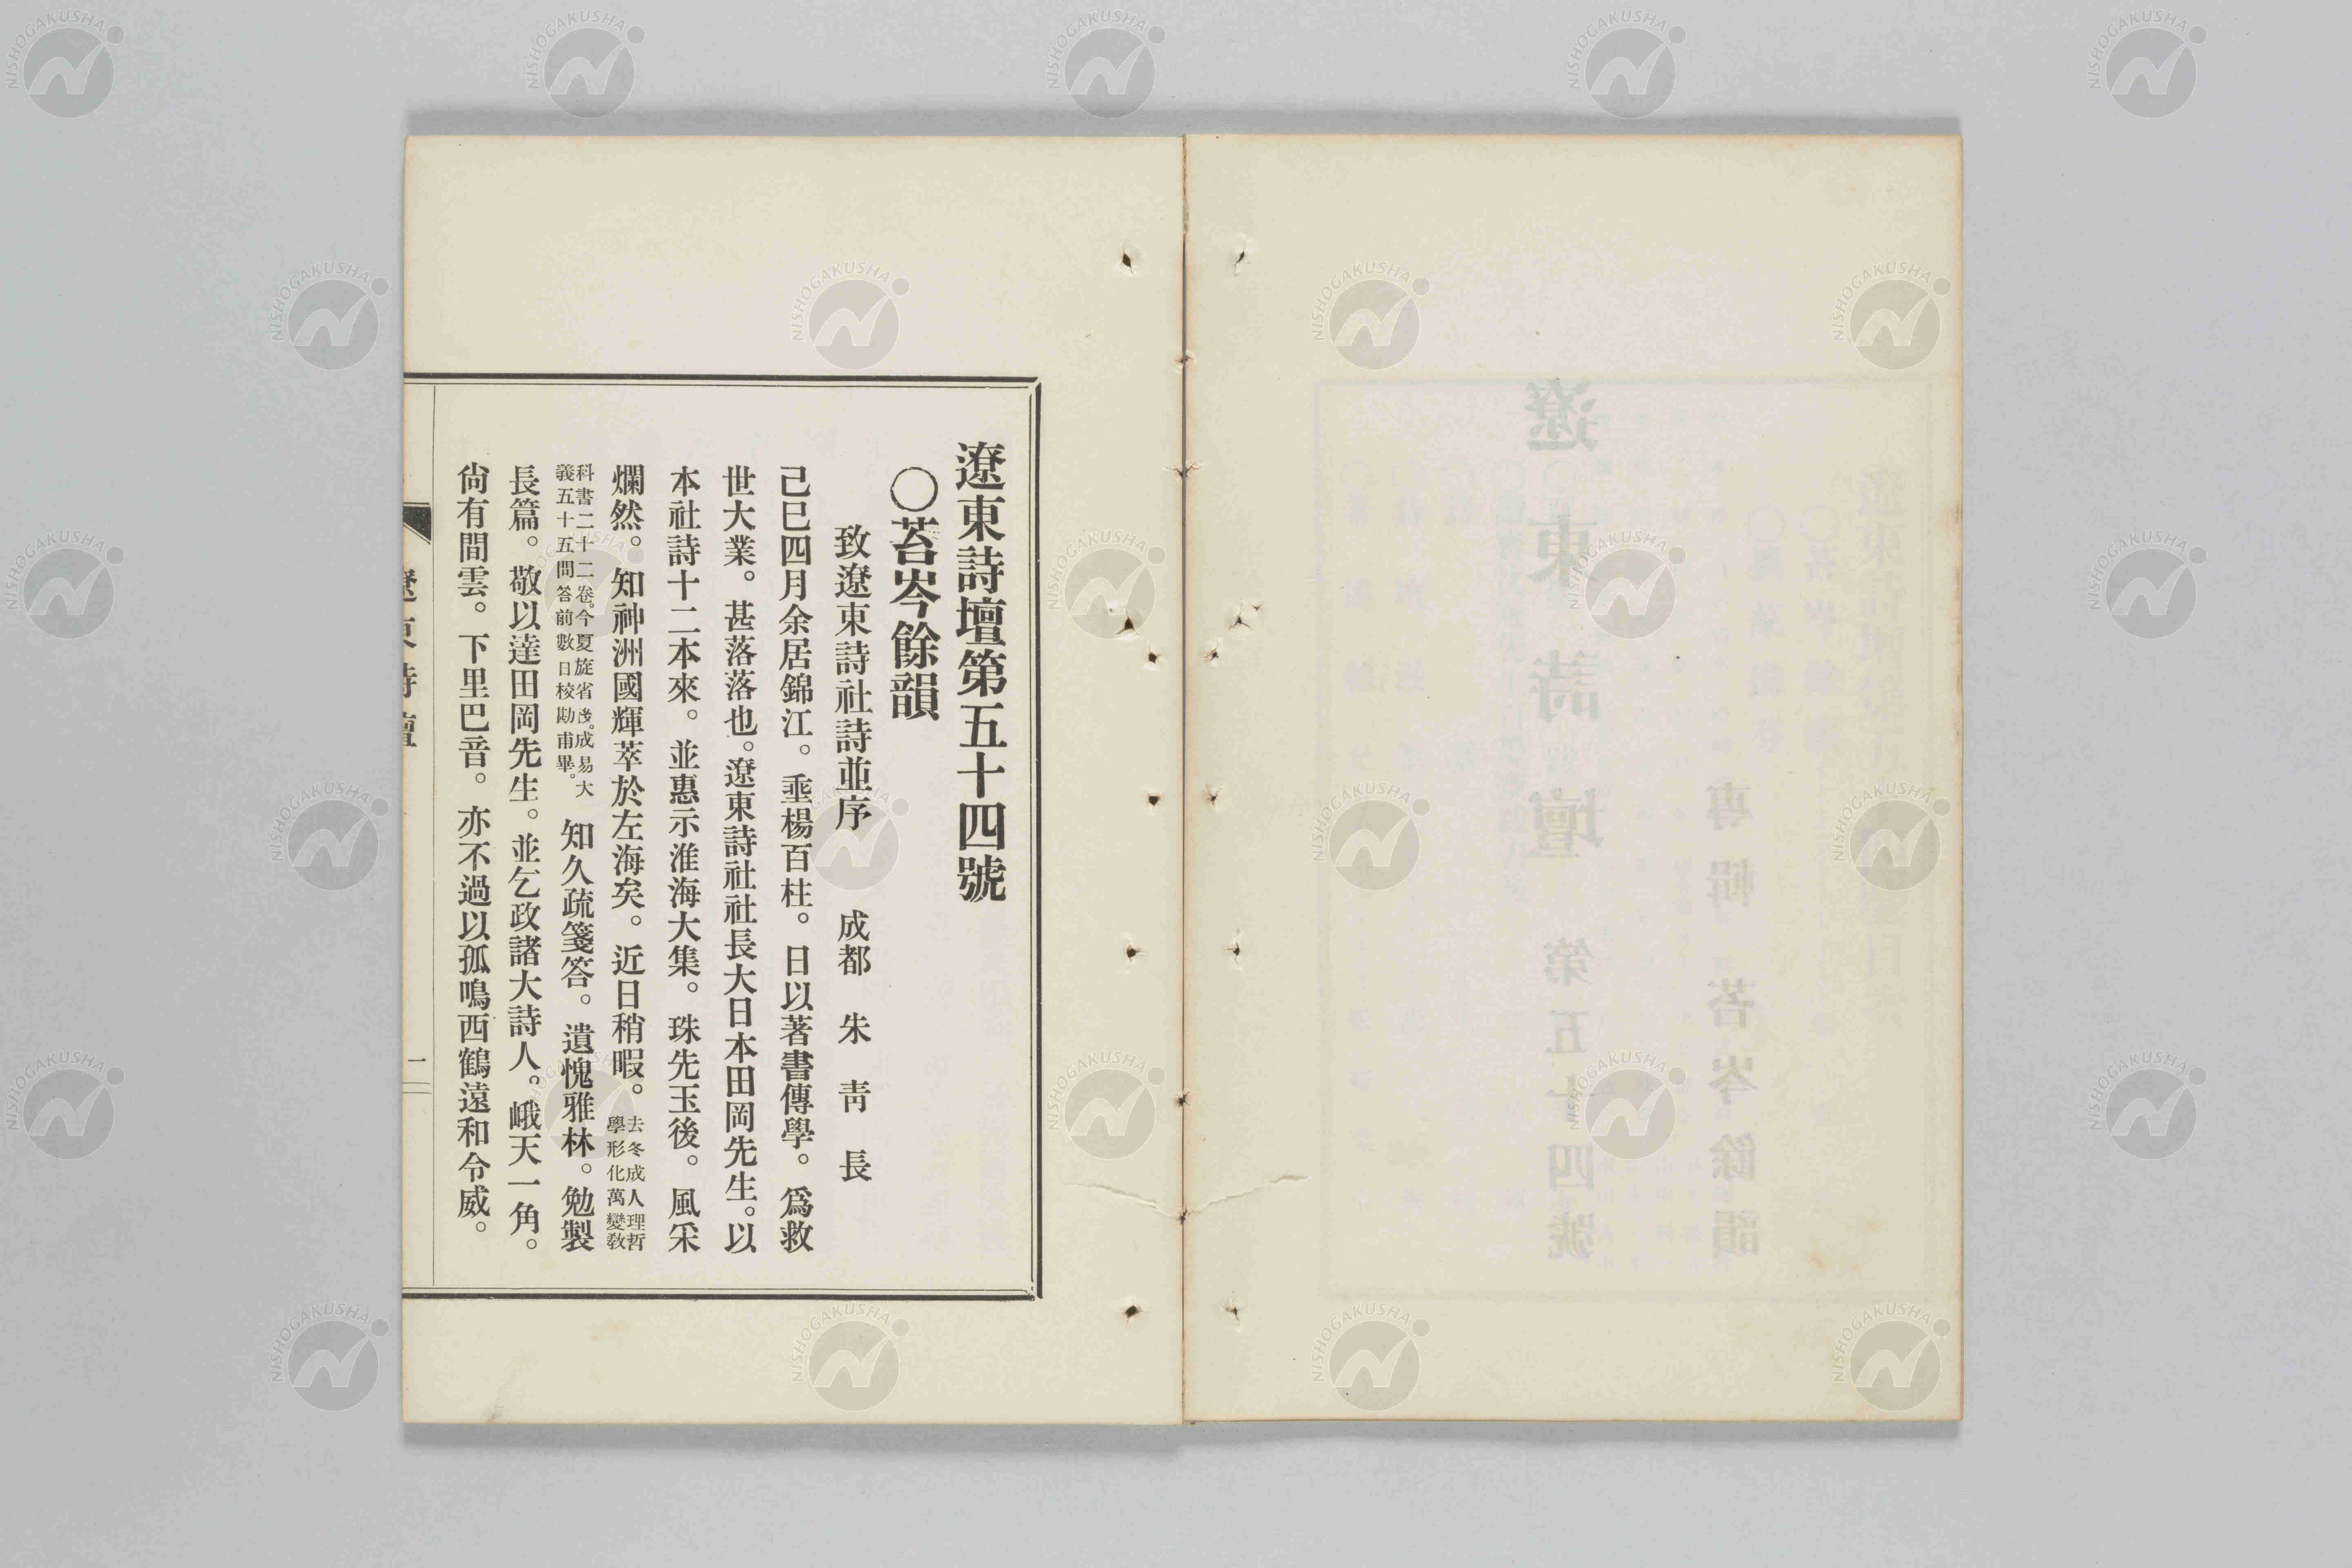 遼東詩壇第五十四號
〇苔岑餘韻
致遼東詩社詩並序 成都 朱靑長
己巳四月余居錦江。垂楊百柱。日以著書傳學。爲救
世大業。甚落落也。遼東詩社社長大日本田岡先生。以
本社詩十二本來。並惠示淮海大集。珠先玉後。風采
爛然。知神洲國輝萃於左海矣。近日稍暇。去冬成人理哲
學形化萬變敎
科書二十二卷。今夏旋省邊。成易大
義五十五問答前數日校勘甫畢。知久疏箋答。遺愧雅林。勉製
長篇。敬以達田岡先生。並乞政諸大詩人。峨天一角。
尙有閒雲。下里巴音。亦不過以孤鳴西鶴遠和令威。
遼東詩壇
一
NISHOGAKUSHA